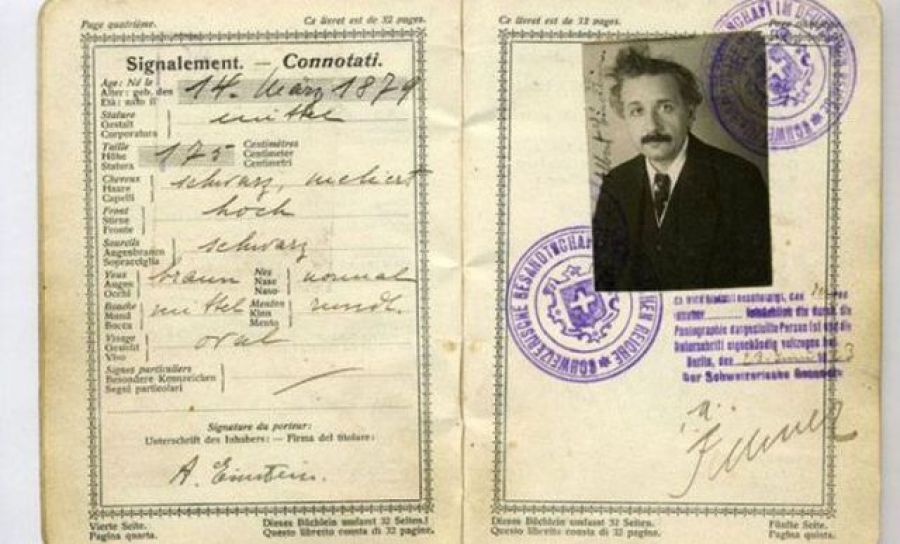 Page quatrième. Ce livret est de 32 pages.
Signalement. — Connotati.
Age: Né le
Alter: geb. den 14. März 1879
Età: nato il
Stature
Gestalt mittel
Corporatura
Taille Centimètres
Höhe 175 Centimeter
Statura Centimetri
Cheveux
Haare schwarz, meliert
Capelli
Front
Stirne hoch
Fronte
Sourcils
Augenbrauen schwarz
Sopracciglia
Yeux Nez
Augen braun Nase normal
Occhi Naso
Bouche Menton
Mund mittel Kinn rundl.
Bocca Mento
Visage
Gesicht oval
Viso
Signes particuliers
Besondere Kennzeichen
Segni particolari
Signature du porteur:
Unterschrift des Inhabers: — Firma del titolare:
A. Einstein.
Vierte Seite. Dieses Büchlein umfasst 32 Seiten.
Pagina quarta. Questo libretto consta di 32 pagine.
Ce livret est de 32 pages.
SCHWEIZERISCHE GESANDTSCHAFT IM DEUTSCHEN REICHE
SCHWEIZERISCHE GESANDTSCHAFT IM DEUTSCHEN REICHE
Es wird hiermit bescheinigt, dass
Inhaber die durch die
Photographie dargestellte Person ist und die
Unterschrift eigenhändig vollzogen hat.
Berlin, den
Der Schweizerische Gesandte
Dieses Büchlein umfasst 32 Seiten. Fünfte Seite.
Questo libretto consta di 32 pagine. Pagina quinta.